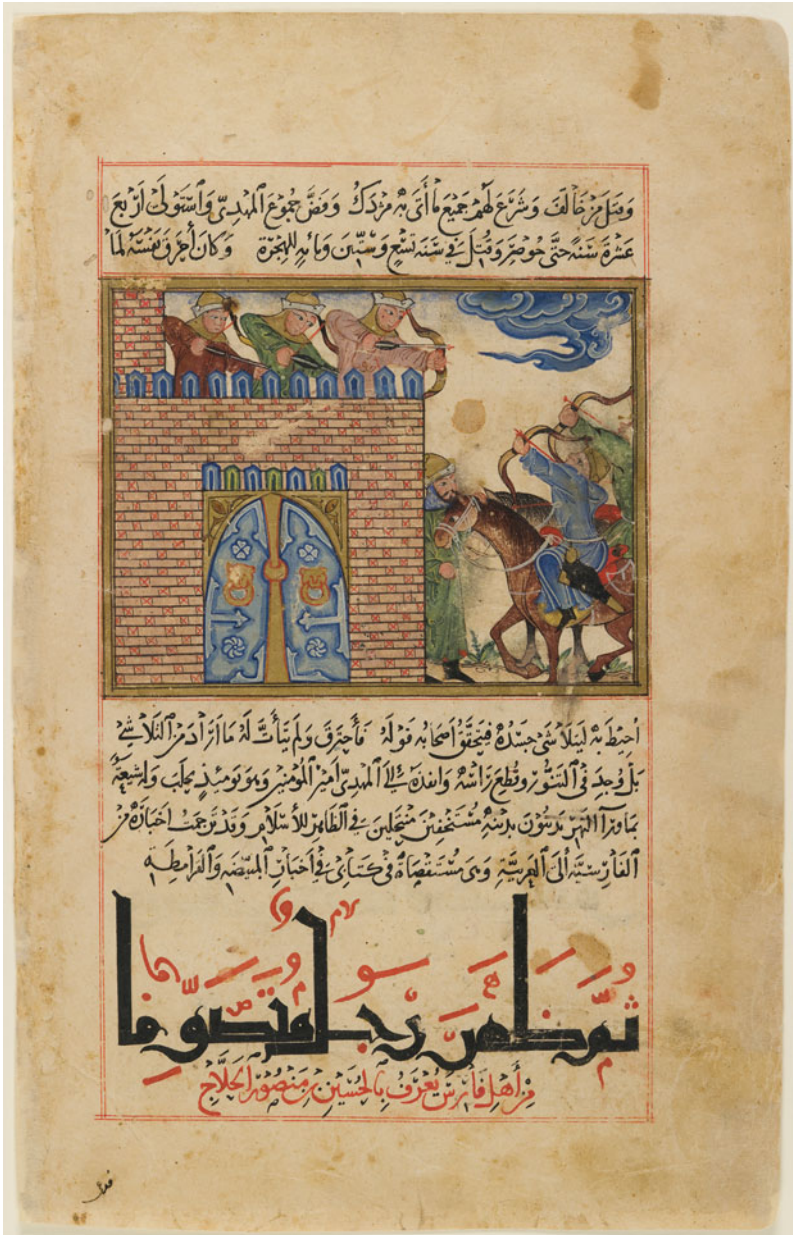 وقتل من خالف وشرع لهم جميع ما أتى به مزدك وفض جموع المهدي واستولى أربع
عشرة سنة حتى حوصر وقتل في سنة تسع وستين ومائة للهجرة وكان أحرق نفسه لما
أحيط به ليتلاشى جسده فيتحقق أصحابه قوله فأحترق ولم يتأت له ما أراد من التلاشي
بل وجد في التنور وقطع رأسه وانفذه الى المهدي أمير المؤمنين وهو يومئذ بحلب وله شيعة
بماورآ النهر يدينون بدينه مستخفين منتحلين في الظاهر للأسلام وقد ترجمت اخباره من
الفارسية ألى العربية وهي مستقصاة في كتابي في أخبار المبيضه والقرامطه
ثم ظهر رجل متصوف
من أهل فارس يعرف بالحسين بن منصور الحلاج